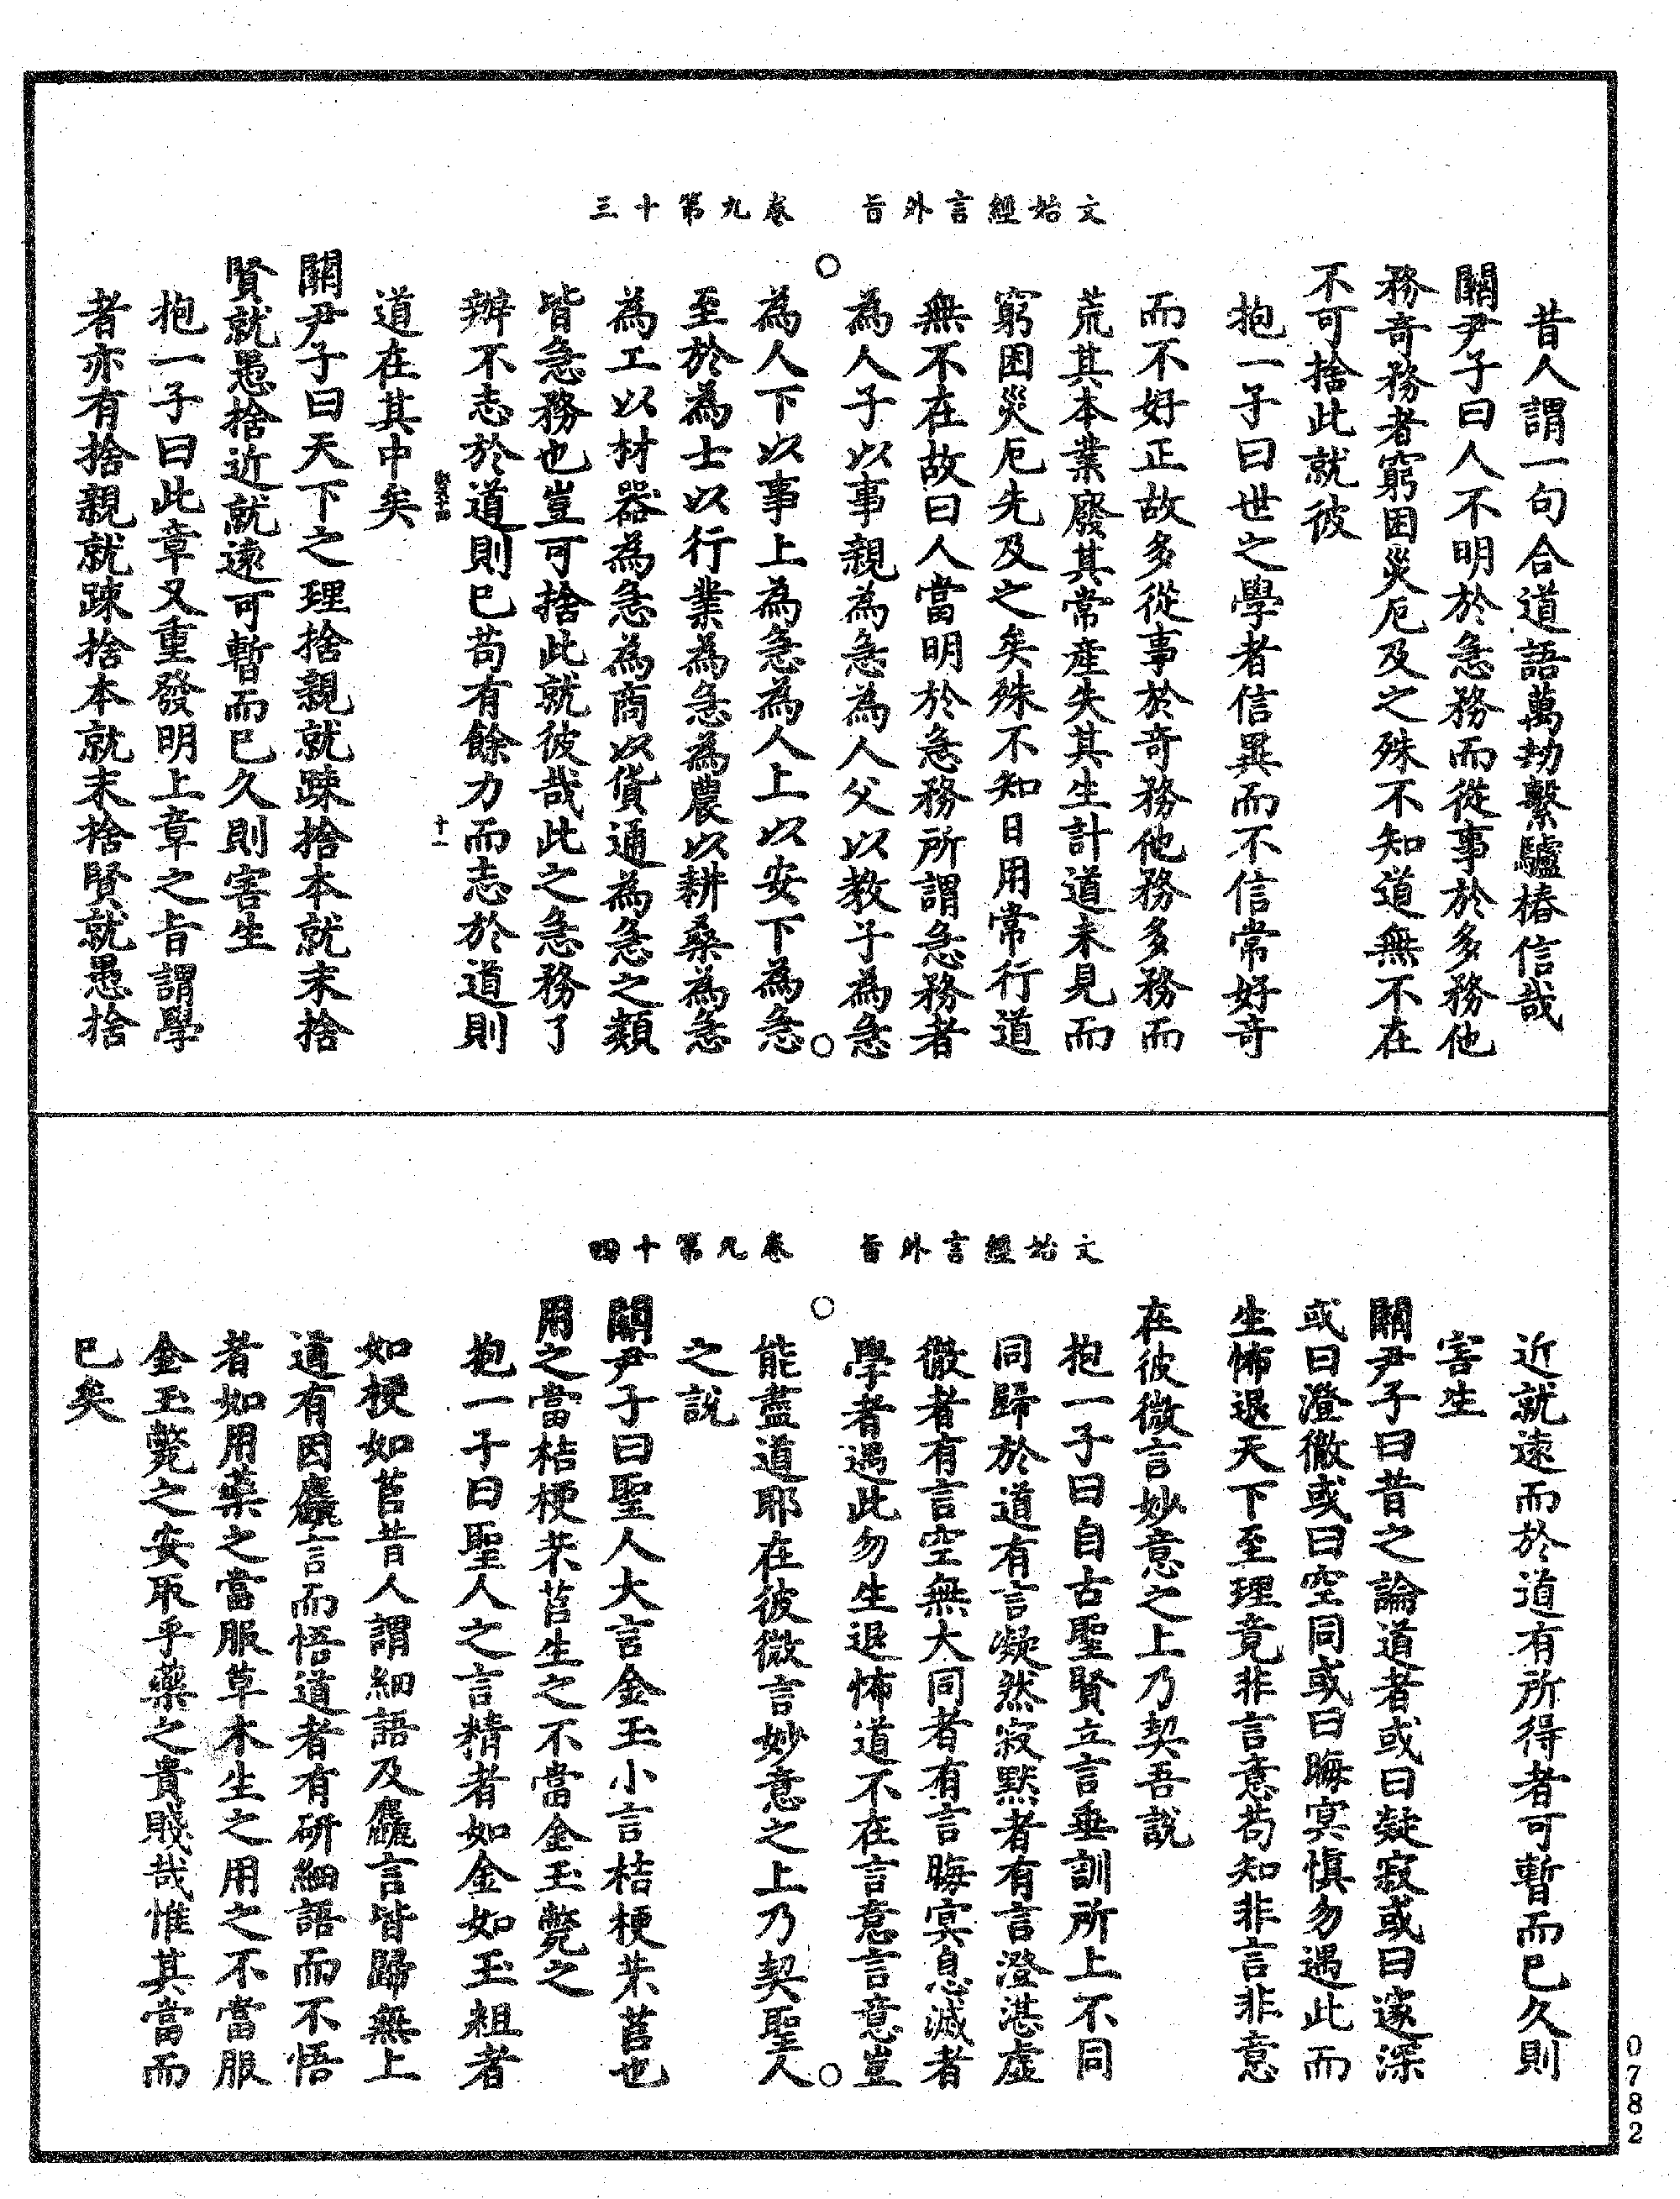 文始經言外旨　卷九第十三
昔人謂一句合道語萬劫繫驢樁信哉
關尹子曰人不明於急務而從事於多務他
務奇務者窮困災厄及之殊不知道無不在
不可捨此就彼
抱一子曰世之學者信異而不信常好奇
而不好正故多從事於奇務他務多務而
荒其本業廢其常產失其生計道未見而
窮困災厄先及之矣殊不知日用常行道
無不在故曰人當明於急務所謂急務者
為人子以事親為急為人父以教子為急
為人下以事上為急為人上以安下為急
至於為士以行業為急為農以耕桑為急
為工以材器為急為商以貨通為急之類
皆急務也豈可捨此就彼哉此之急務了
辦不志於道則已苟有餘力而志於道則
十一
道在其中矣
關尹子曰天下之理捨親就踈捨本就末捨
賢就愚捨近就遠可暫而已久則害生
抱一子曰此章又重發明上章之旨謂學
者亦有捨親就踈捨本就末捨賢就愚捨
文始經言外旨　卷九第十四
近就遠而於道有所得者可暫而已久則
害生
關尹子曰昔之論道者或曰凝寂或曰邃深
或曰澄徹或曰空同或曰晦冥慎勿遇此而
生怖退天下至理竟非言意苟知非言非意
在彼微言妙意之上乃契吾說
抱一子曰自古聖賢立言垂訓所上不同
同歸於道有言凝然寂默者有言澄湛虛
徹者有言空無大同者有言晦冥息滅者
學者遇此勿生退怖道不在言意言意豈
能盡道耶在彼微言妙意之上乃契聖人
之說
關尹子曰聖人大言金玉小言桔梗芣苢也
用之當桔梗芣苢生之不當金玉斃之
抱一子曰聖人之言精者如金如玉粗者
如梗如苢昔人謂細語及麤言皆歸無上
道有因麤言而悟道者有研細語而不悟
者如用藥之當服草木生之用之不當服
金玉斃之安取乎藥之貴賤哉惟其當而
已矣
0782